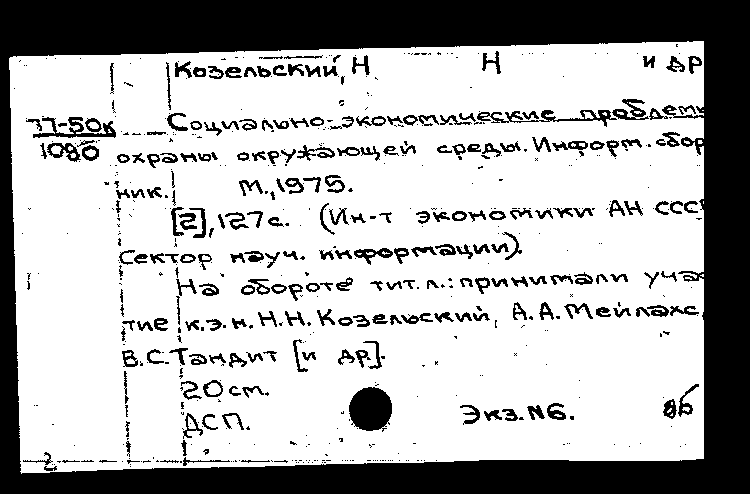 Козельский, Н Н и др
77-50к Социально-экономические проблемы
1080 охраны окружающей среды. Информ. сбор
ник. М., 1975.
[2], 127 с. (Ин-т экономики АН СССР
Сектор науч. информации).
На обороте тит. л.: принимали учас
тие к.э.н. Н.Н. Козельский, А.А. Мейлахс,
В.С. Тандит [и др].
20 см.
ДСП. Экз. N6.
2